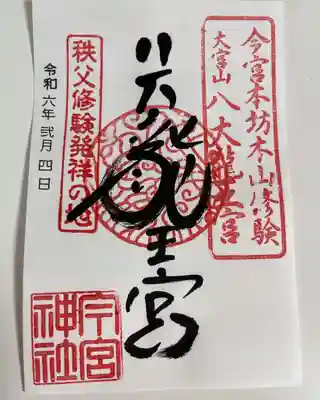 今宮本坊本山修験
大宮山 八大龍王宮
八大龍王宮
秩父修験発祥の地
令和六年弐月四日
今宮
神社